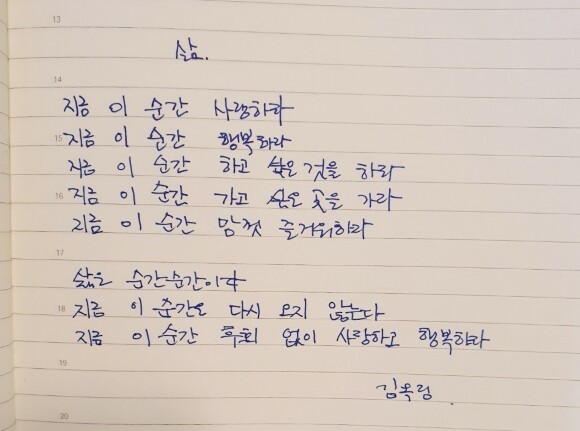 13
삶.
14
지금 이 순간 사랑하라
15
지금 이 순간 행복하라
지금 이 순간 하고 싶은 것을 하라
16
지금 이 순간 가고 싶은 곳을 가라
지금 이 순간 맘껏 즐거워하라
17
삶은 순간순간이다
18
지금 이 순간은 다시 오지 않는다
지금 이 순간 후회 없이 사랑하고 행복하라
19
김옥렁.
20